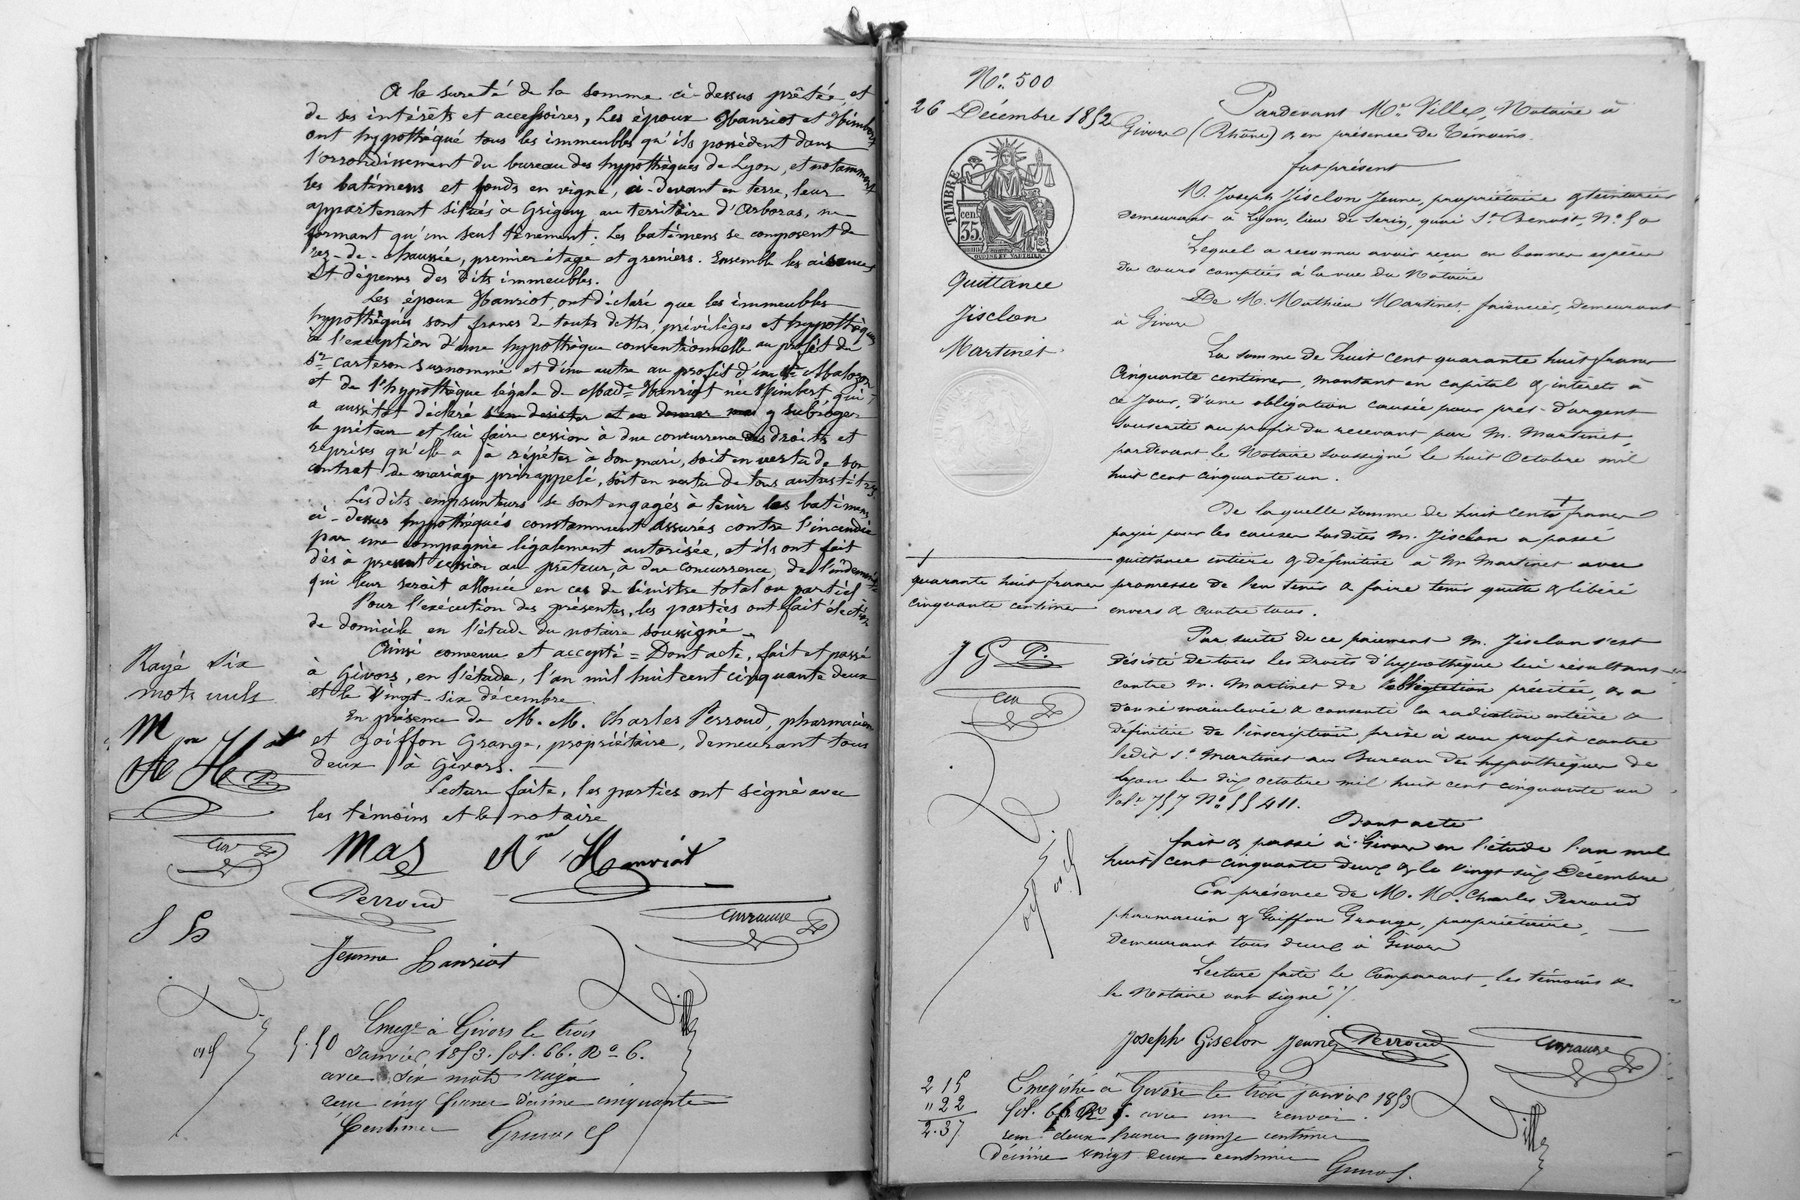 A la sureté de la somme ci-dessus prêtée, et
de ses intérêts et accessoires, Les époux Hanriot et Himbert
ont hypothéqué tous les immeubles qu'ils possèdent dans
l'arrondissement du bureau des hypothèques de Lyon, et notamment
les batimens et fonds en vigne, ci-devant en terre, leur
appartenant situés à Grigny, au territoire d'Arboras, ne
formant qu'un seul tènement; Les batimens se composent de
rez-de-chaussée, premier étage et greniers. Ensemble les aisances
et dépences des dits immeubles.
Les époux Hanriot, ont déclaré que les immeubles
hypothéqués sont francs de toutes dettes, privilèges et hypothèques
à l'exception d'une hypothèque conventionnelle au profit du
Sr. Carteron surnommé et d'une autre au profit d'un
et de l'hypothèque légale de Made. Hanriot née Himbert, qui
a aussitôt déclaré s'en desister et subroger
le prêteur et lui faire cession à due concurrence des droits et
reprises qu'elle a à répéter à son mari, soit en vertu de son
contrat de mariage prérappelé, soit en vertu de tous autres titres.
Les dits emprunteurs se sont engagés à tenir les batimens
ci-dessus hypothéqués constamment assurés contre l'incendie
par une compagnie légalement autorisée, et ils ont fait
dès à present cession au prêteur, à due concurrence, de l'indemnité
qui leur serait allouée en cas de sinistre total ou partiel
Pour l'exécution des présentes, les parties ont fait élection
de domicile en l'étude du notaire soussigné
Ainsi convenu et accepté = Dont acte, fait et passé
à Givors, en l'étude, l'an mil huit cent cinquante deux
et le vingt-six décembre
En présence de M. M. Charles Perroud, pharmacien
et Goiffon Grange, propriétaire, demeurant tous
deux à Givors. —
Lecture faite, les parties ont signé avec
les témoins et le notaire
Rayé six
mots nuls
M
Mas Hanriot
Perroud
Jeanne Hanriot
Enregé à Givors le trois
5.50 Janvier 1853. fol. 66. Ro 6.
avec six mots rayés
reçu cinq francs décime cinquante
Centimes
No. 500
26 Décembre 1852
TIMBRE
cen
35
Quittance
Jisclon
Martinet
Pardevant Me. Ville, Notaire à
Givors (Rhône) & en présence de Témoins.
fut présent
M. Joseph Jisclon Jeune, propriétaire & teinturier
demeurant à Lyon, lieu de Serin, quai St. Benoit, No. 50
Lequel a reconnu avoir reçu en bonnes espèces
du cours comptées à la vue du Notaire
De M. Mathieu Martinet, faiencier, demeurant
à Givors
La somme de huit cent quarante huit francs
cinquante centimes, montant en capital & intérêts à
ce jour, d'une obligation causée pour prêt-d'argent
souscrite au profit du recevant par M. Martinet,
pardevant le Notaire soussigné le huit Octobre mil
huit cent cinquante un.
De laquelle somme de huit cents francs
payée pour les causes susdites M. Jisclon a passé
quittance entière & définitive à M. Martinet avec
promesse de l'en tenir & faire tenir quitte & libéré
envers & contre tous.
quarante huit francs
cinquante centimes
J G P.
Par suite de ce paiement M. Jisclon s'est
désisté de tous les droits d'hypothèque lui résultans
contre M. Martinet de l'obligation précitée, & a
donné mainlevée & consenti la radiation entière &
définitive de l'inscription, prise à son profit contre
ledit Sr. Martinet au Bureau des hypothèques de
Lyon le dix octobre mil huit cent cinquante un
Vol. 757 No. 55411.
Dont acte
fait & passé à Givors en l'étude l'an mil
huit cent cinquante deux & le vingt six Décembre
En présence de M. M. Charles Perroud
pharmacien & Goiffon Grange, propriétaire, —
demeurant tous deux à Givors
Lecture faite le Comparant, les témoins &
le Notaire ont signé
Joseph Giselon Jeune Perroud
2 15
"22
2.37
Enregistré à Givors le trois janvier 1853
fol. 66 Ro 5. avec un renvoi.
reçu deux francs quinze centimes
décime vingt deux centimes
Ville